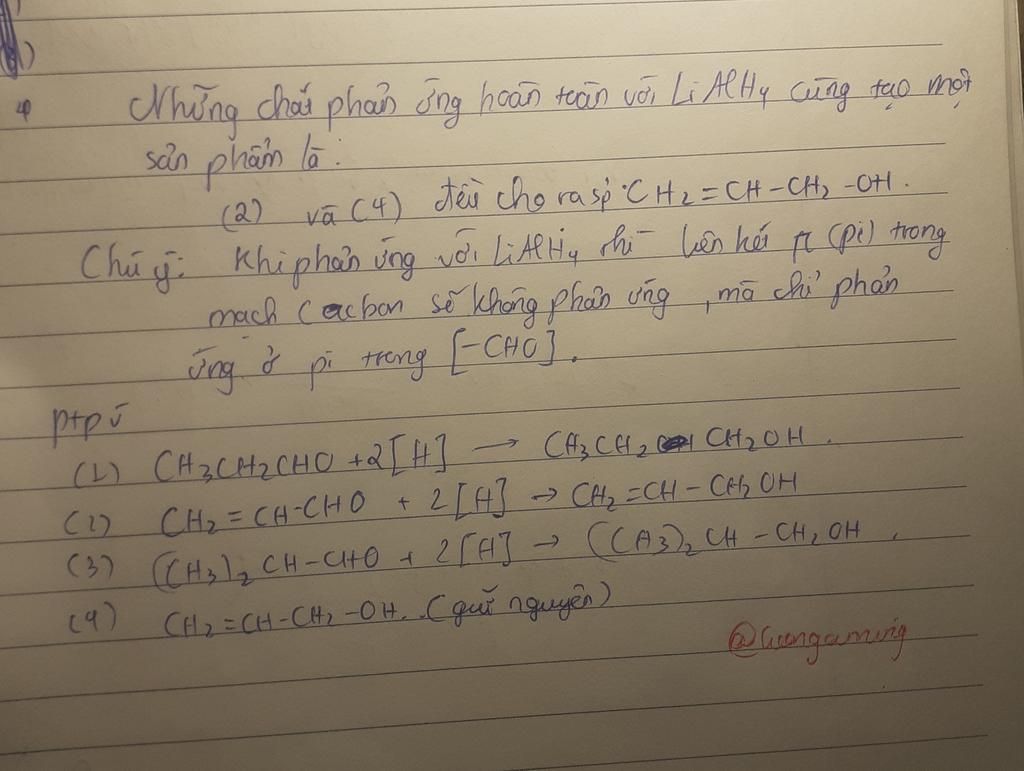 Những chất phản ứng hoàn toàn với LiAlH4 cùng tạo một
sản phẩm là:
(2) và (4) đều cho ra sp CH2=CH-CH2-OH.
Chú ý: Khi phản ứng với LiAlH4 thì liên kết π (pi) trong
mạch Cacbon sẽ không phản ứng, mà chỉ phản
ứng ở pi trong [-CHO].
ptpứ
(1) CH3CH2CHO +2[H] → CH3CH2 CH2OH.
(2) CH2=CH-CHO + 2[H] → CH2=CH-CH2OH
(3) (CH3)2CH-CHO + 2[H] → (CH3)2CH-CH2OH.
(4) CH2=CH-CH2-OH. (giữ nguyên)